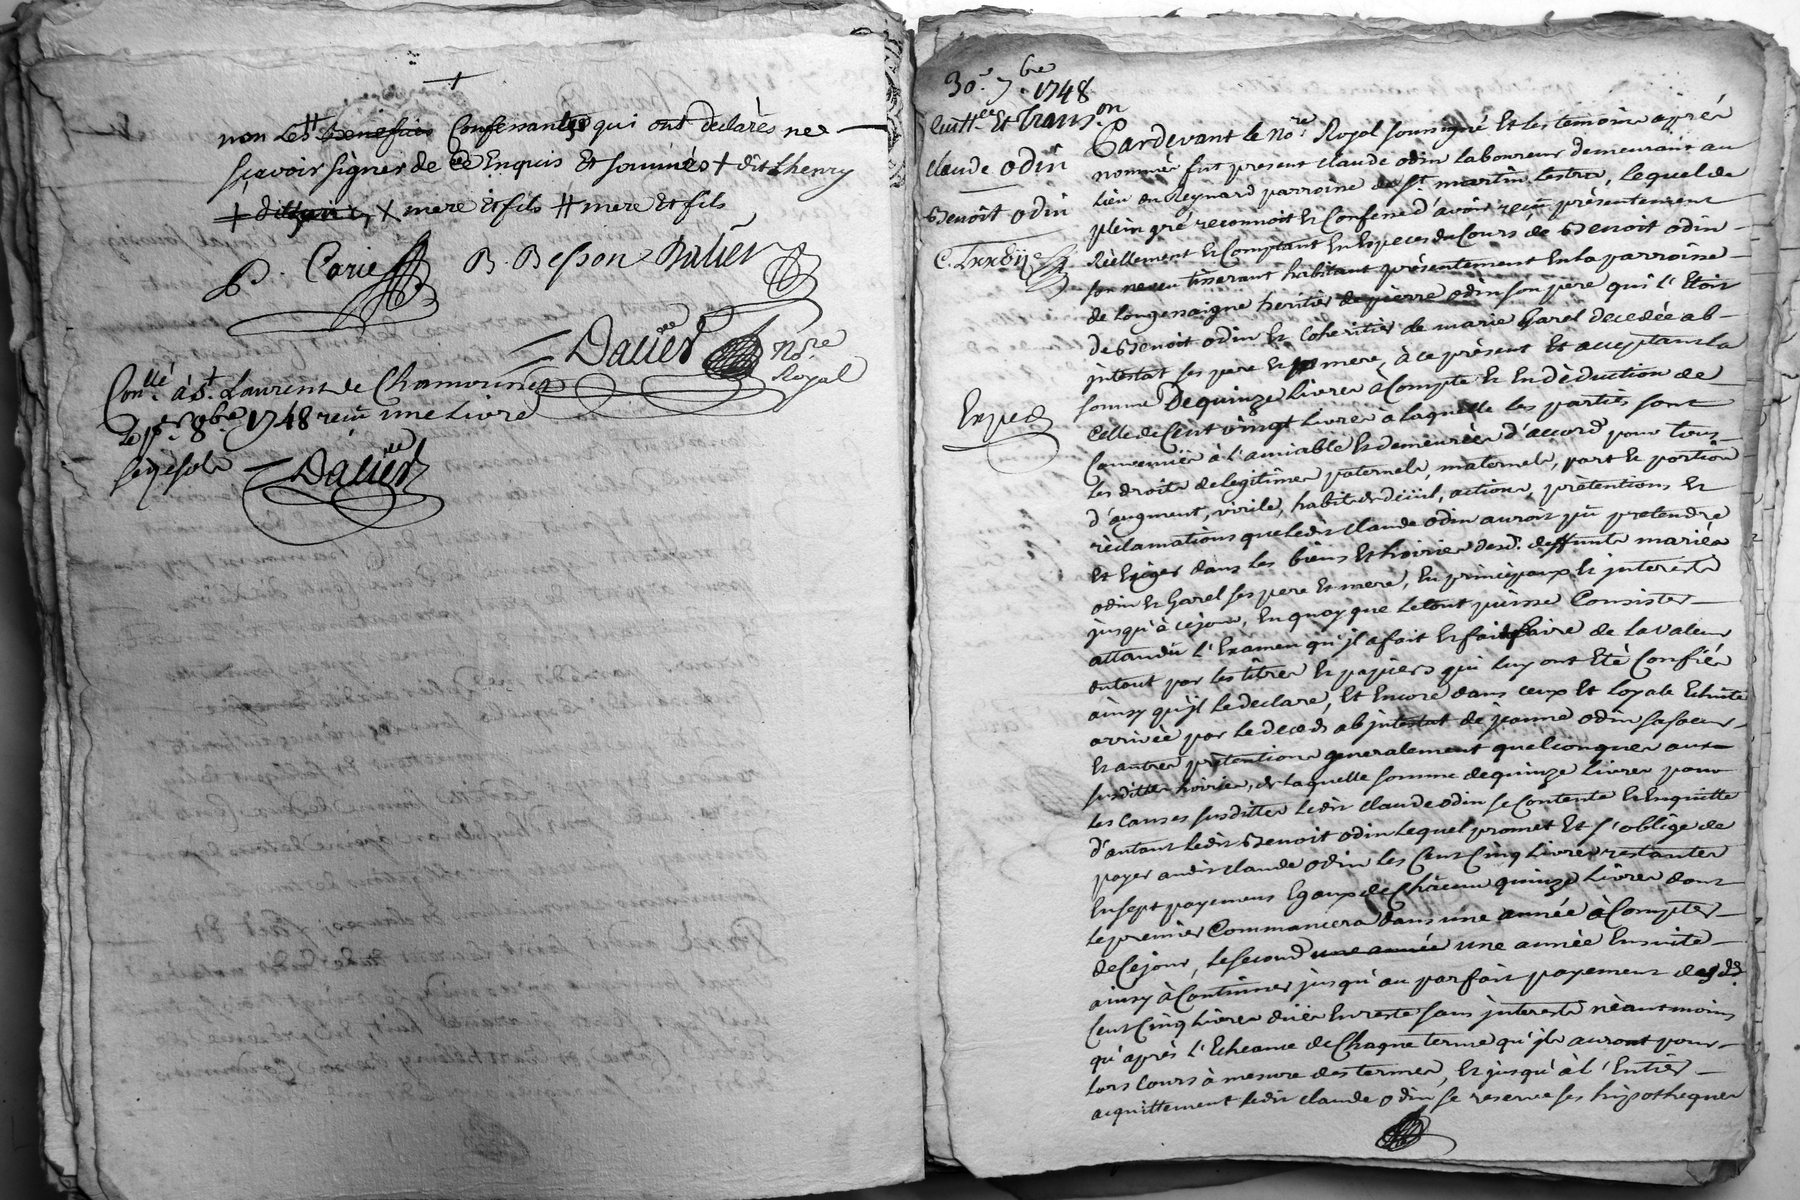 non les tt Confessantes qui ont declarés ne
sçavoir signer de ce Enquis Et sommés + dit Lhenry
+ X mere Et fils # mere Et fils
P. Carié B. Besson Dalier
Dalier No.re
Royal
Con.llé à St. Laurent de Chamousset
Le p.er 8bre 1748 reçu une Livre
Six sols Dalier
30.e 7.bre 1748
Quitt.ce Et Trans.on
Claude odin
Benoit odin
Exped
Pardevant le No.re Royal soussigné Et les temoins aprés
nommés fut present Claude odin Laboureur demeurant au
Lieu du Reynard parroisse de St. martin Lestra, Lequel de
plein gré reconnoit Et Confesse d'avoir reçu présentement
Réellement Et Comptant En Especes du Cours de Benoit odin
son neveu tisserant habitant présentement En la parroisse
de Longessaigne heritier de pierre odin son pere qui l'Etoit
de Benoit odin Et Coheritier de marie Garel decedée ab
intestat ses pere Et mere, à ce présent Et acceptant La
somme De quinze Livres à Compte Et En déduction de
Celle de Cent vingt Livres à laquelle les partis sont
Convenües à l'amiable Et demeurées d'accord pour tous
Les droits de legitimes paternels, maternels, part Et portion
d'augment, virile, habits de düil, actions, prétentions Et
réclamations que ledit Claude odin auroit pû pretendre
Et Exiger dans les biens Et hoiries desd. deffunts mariés
odin Et Garel ses pere Et mere, En principaux Et interests
jusqu'à ce jour, En quoy que le tout puisse Consister
attandû l'Examen qu'jl a fait Et fait faire de la valeur
du tout par les titres Et papiers qui luy ont Eté Confiés
ainsy qu'jl le declare, Et Encore dans ceux Et Loyale Echute
arrivée par le deceds ab jntestat de jeanne odin sa soeur
Et autres prétentions generalement quelconques aux
susdittes hoiries, de laquelle somme de quinze Livres pour
Les causes susdittes ledit Claude odin se Contente Et En quitte
d'autant ledit Benoit odin Lequel promet Et s'oblige de
payer audit Claude odin les Cent Cinq Livres restantes
En sept payemens Egaux de Chacun quinze Livres dont
Le premier Commancera dans une année à Compter
de Ce jour, Le second une année une année Ensuite
ainsy à Continuer jusqu'au parfait payement desd.
Cent Cinq Livres düés En reste sans jnterests néantmoins
qu'après l'Echeance de Chaque terme qu'jls auront pour
Lors Cours à mesure des termes, Et jusqu'à l'Entier
acquittement ledit Claude odin se reserve ses hipotheques